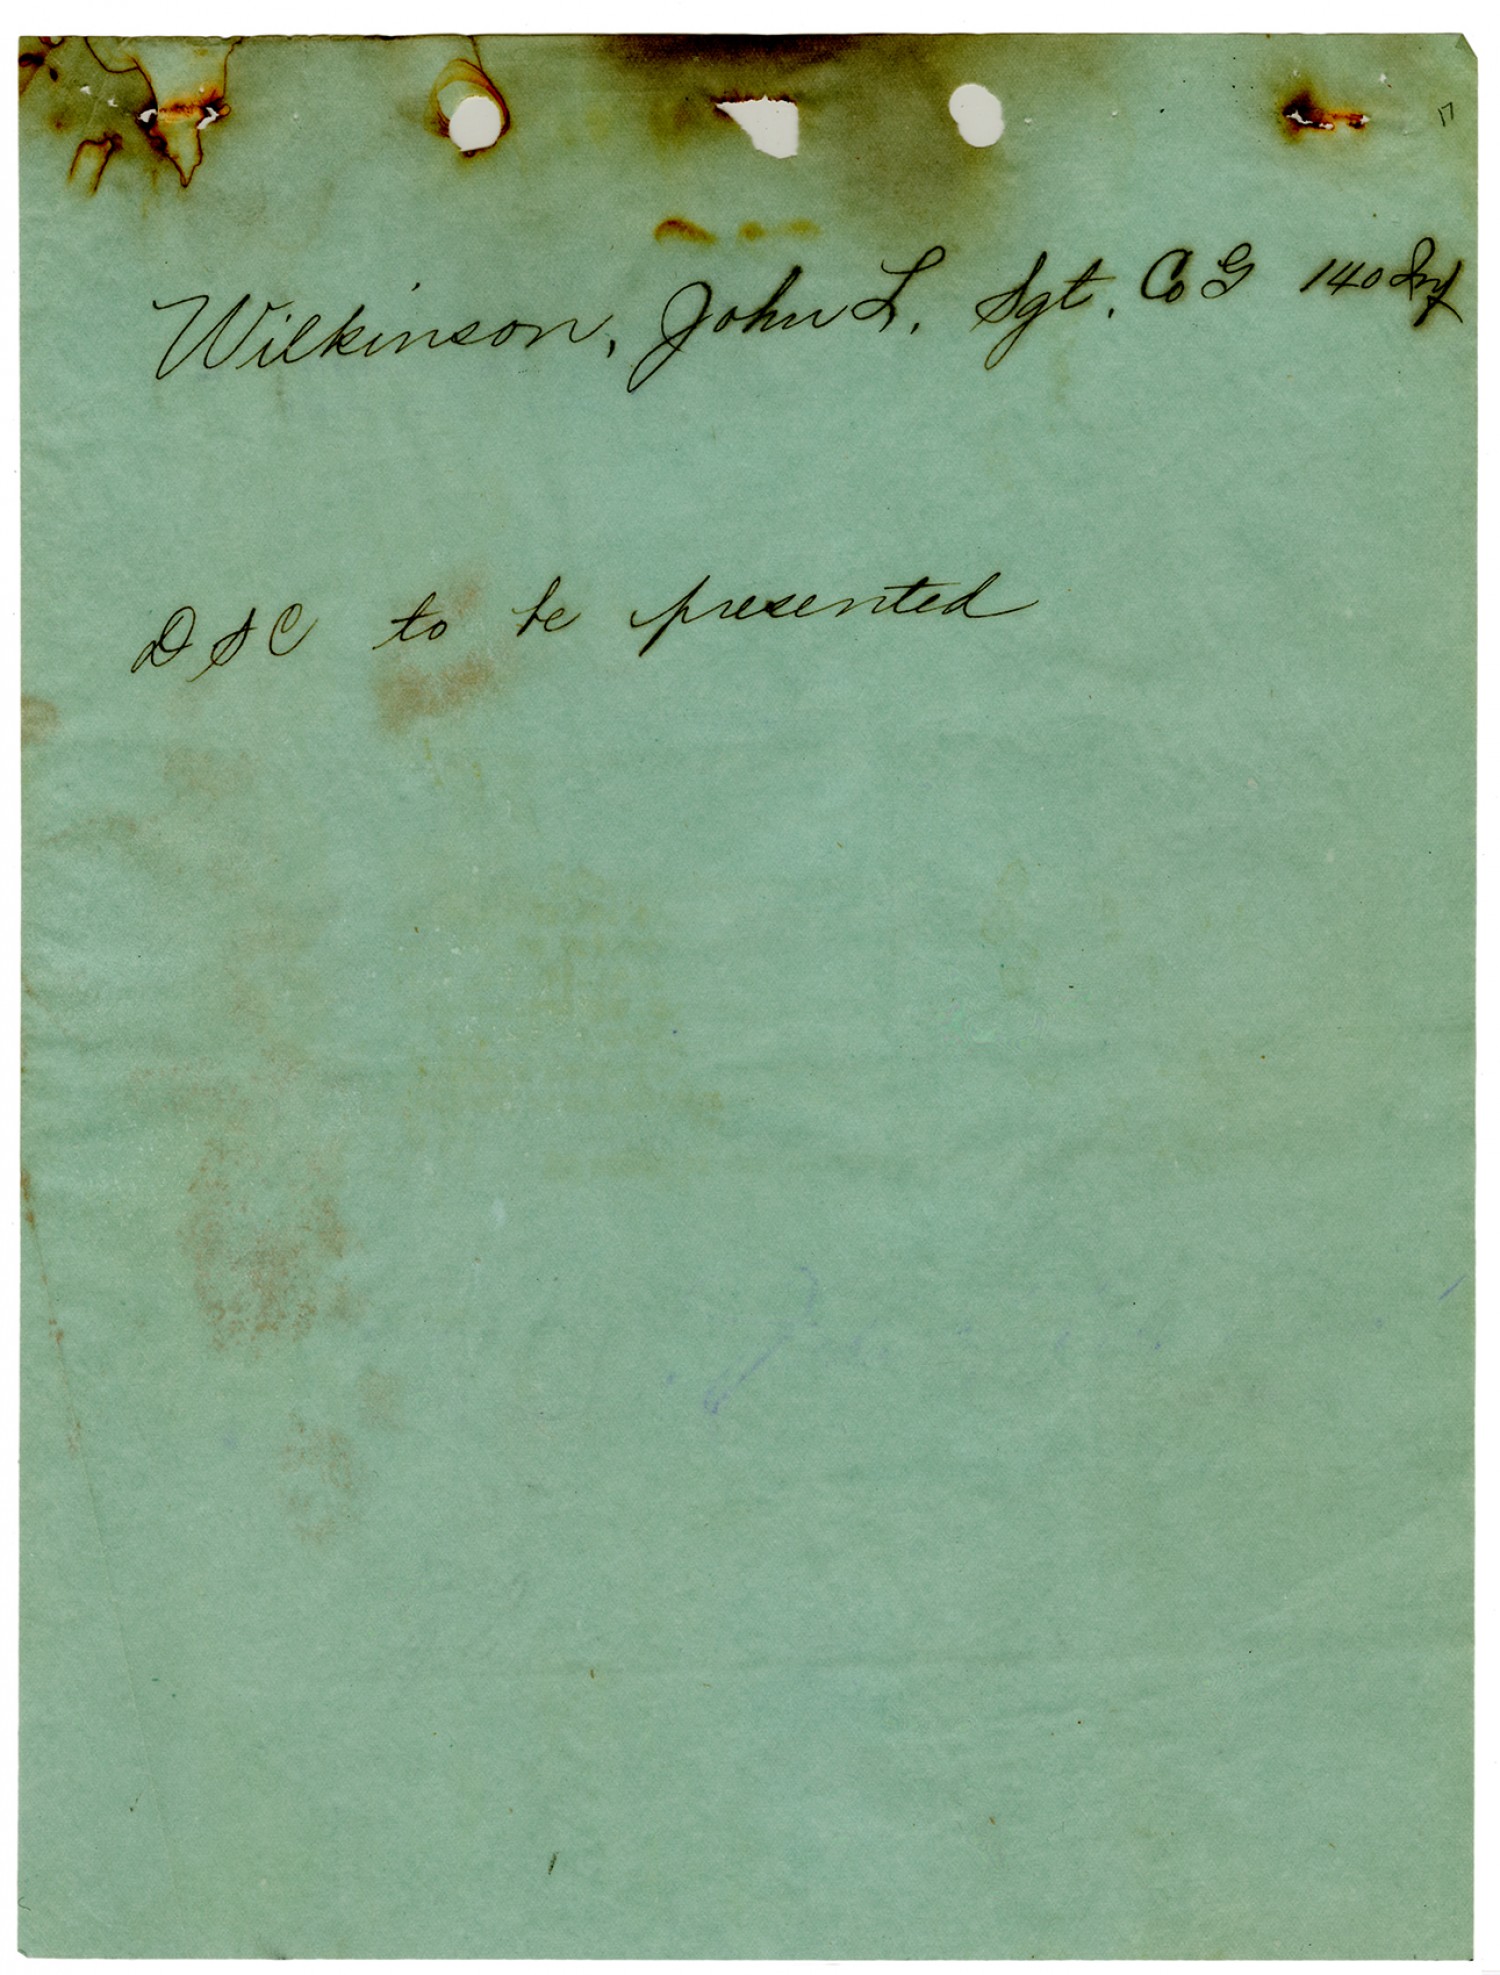 17
Wilkinson, John L, Sgt. Co G 140 Inf
DSC to be presented